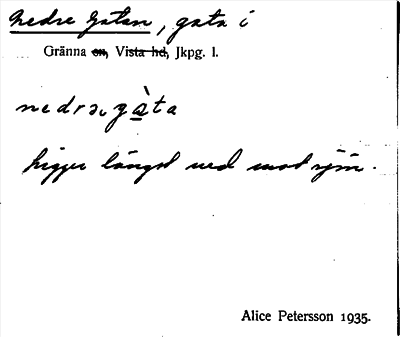 Nedre Gatan, gata i
Gränna en, Vista hd, Jkpg. l.
nedrə gàta
ligger längst ned mot sjön.
Alice Petersson 1935.